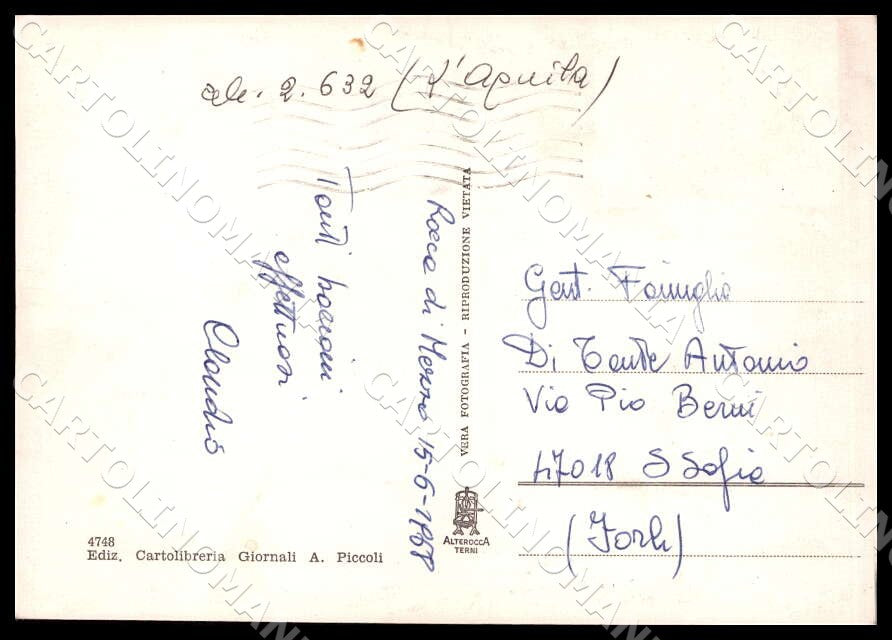 alt. 2.632 (L'Aquila)
Rocca di Mezzo 15-6-1968
Tanti bacioni
affettuosi
Claudio
VERA FOTOGRAFIA - RIPRODUZIONE VIETATA
Gent. Famiglia
Di Tante Antonio
Via Pio Berni
47018 S Sofia
(Forlì)
ALTEROCCA
TERNI
4748
Ediz. Cartolibreria Giornali A. Piccoli
CARTOLINOMANIA